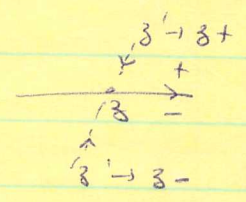 z' → z +
+
z
−
z' → z −